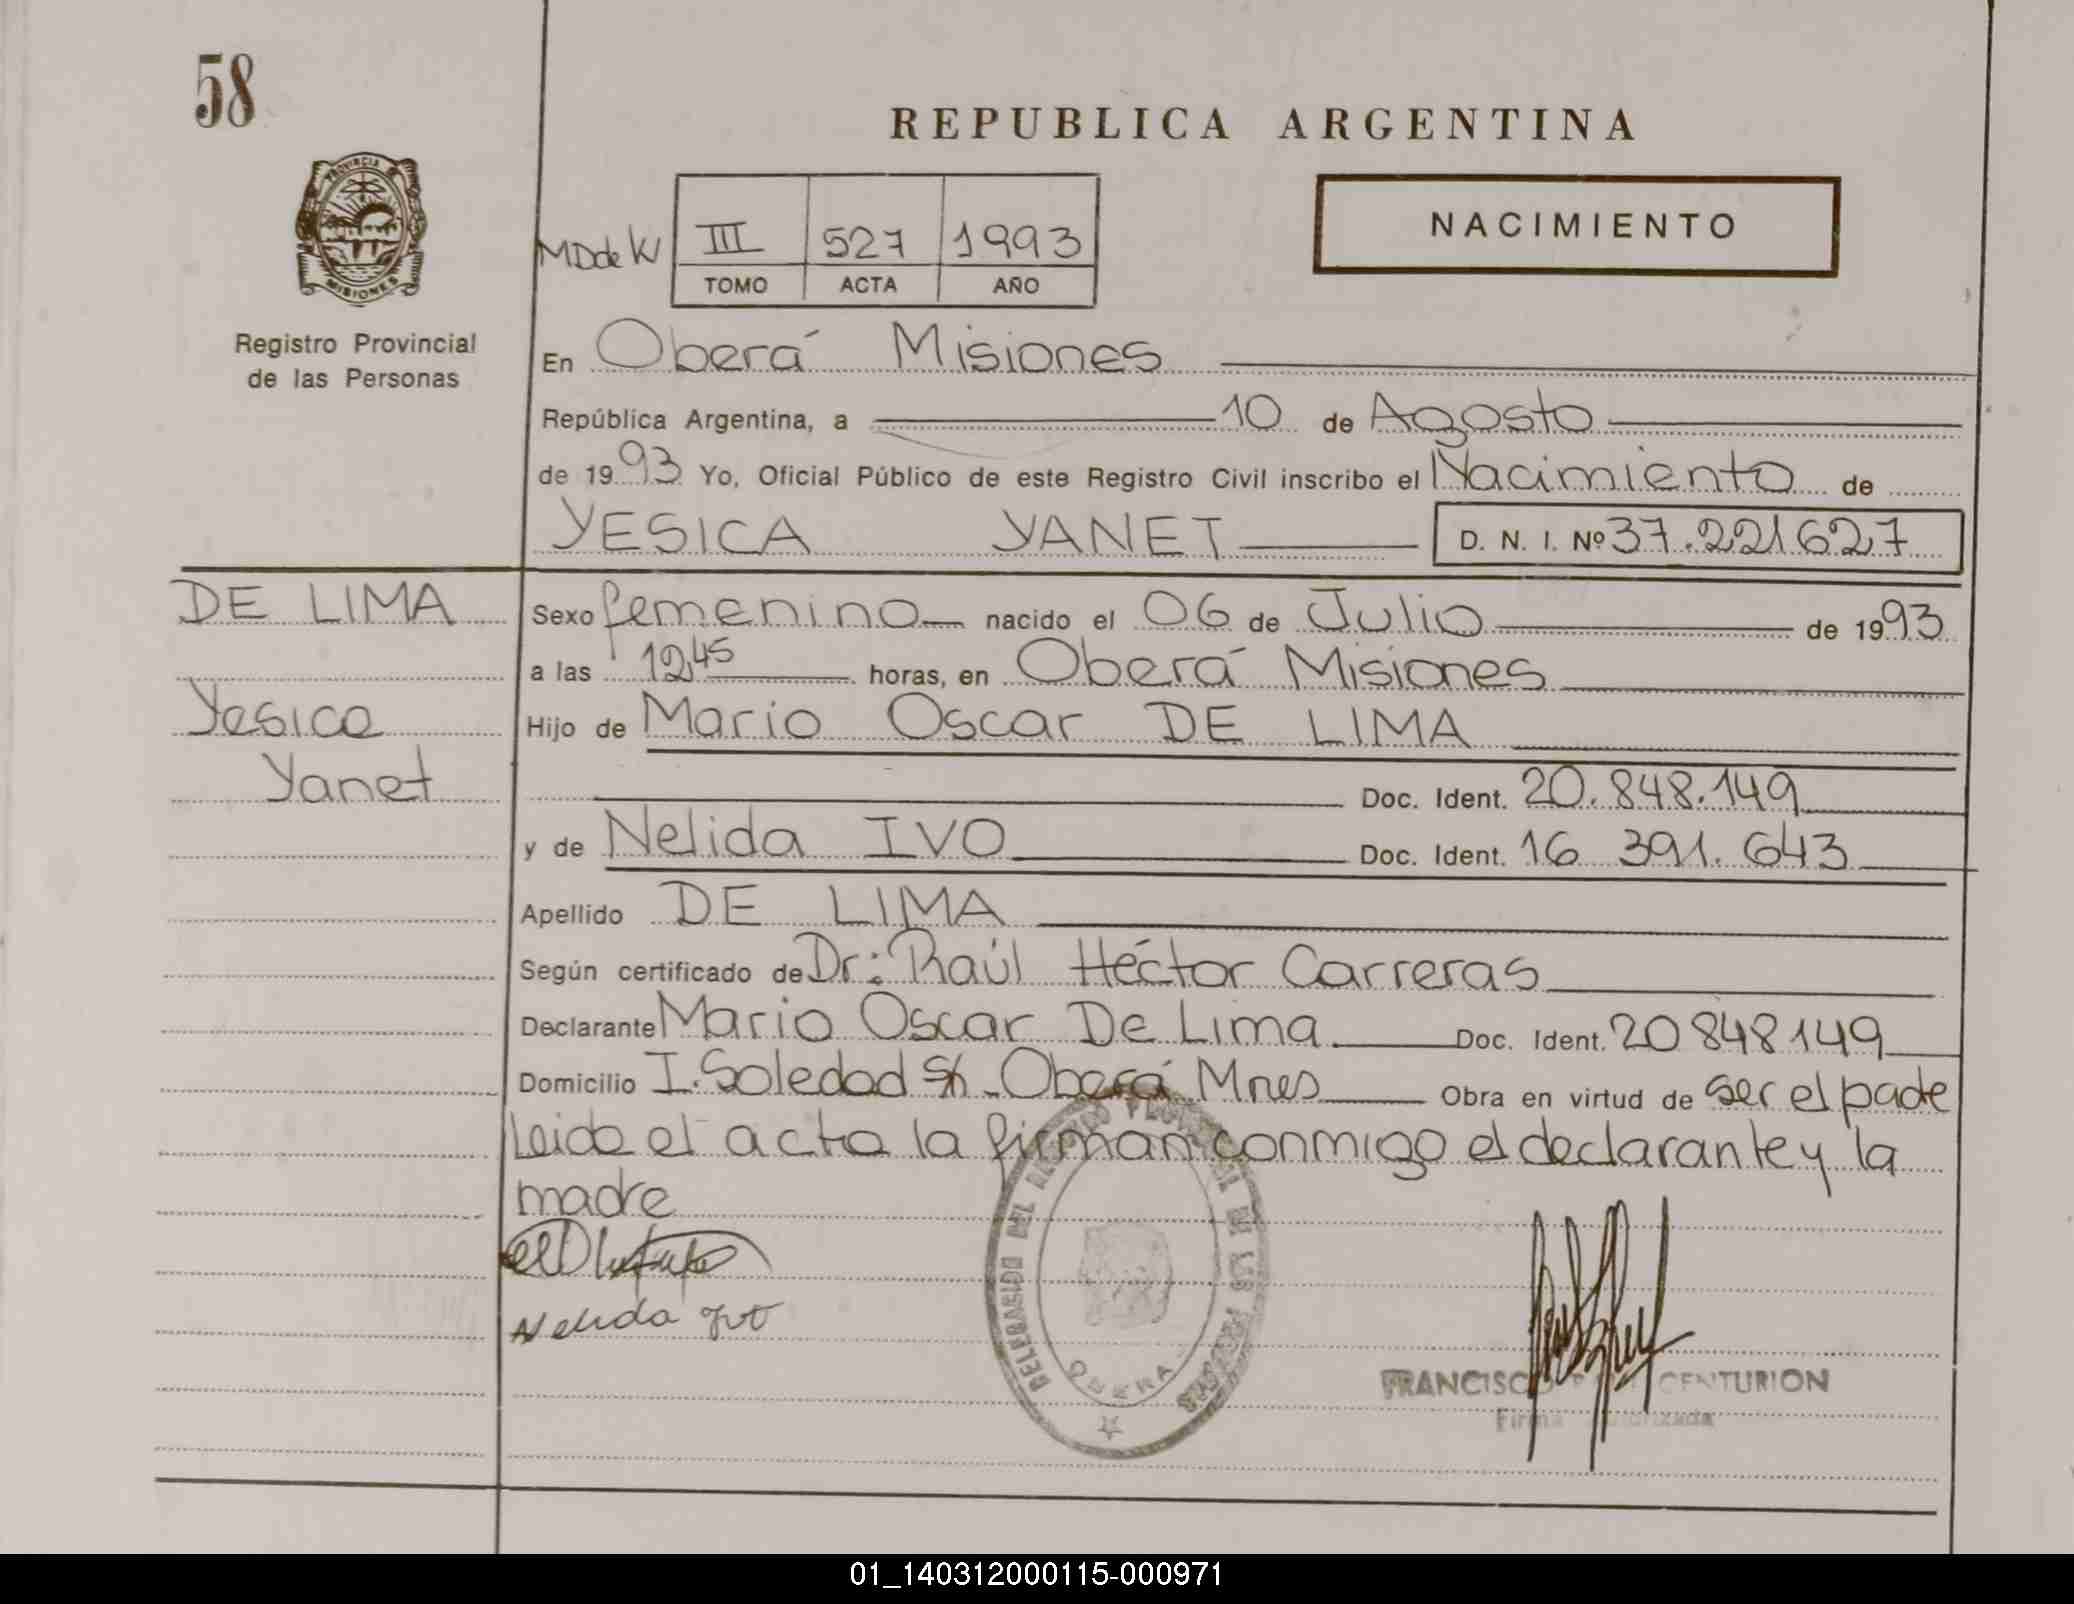 58
REPUBLICA ARGENTINA
PROVINCIA DE
MISIONES
NACIMIENTO
MDdeW III 527 1993
TOMO ACTA AÑO
Registro Provincial
de las Personas
En Oberá Misiones
República Argentina, a 10 de Agosto
de 1993 Yo, Oficial Público de este Registro Civil inscribo el Nacimiento de
YESICA YANET D. N. I. Nº 37.221627
DE LIMA
Yesica
Yanet
Sexo femenino nacido el 06 de Julio de 1993
a las 12,45 horas, en Oberá Misiones
Hijo de Mario Oscar DE LIMA
Doc. Ident. 20.848.149
y de Nelida IVO Doc. Ident. 16 391.643
Apellido DE LIMA
Según certificado de Dr: Raúl Héctor Carreras
Declarante Mario Oscar De Lima Doc. Ident. 20848149
Domicilio I. Soledad S/n - Oberá Mnes Obra en virtud de ser el padre
Leida el acta la firman conmigo el declarante y la
madre
Nelida Ivo
DELEGACION DEL REGISTRO PROVINCIAL DE LAS PERSONAS
OBERA
FRANCISCO CENTURION
Firma Autorizada
01_140312000115-000971